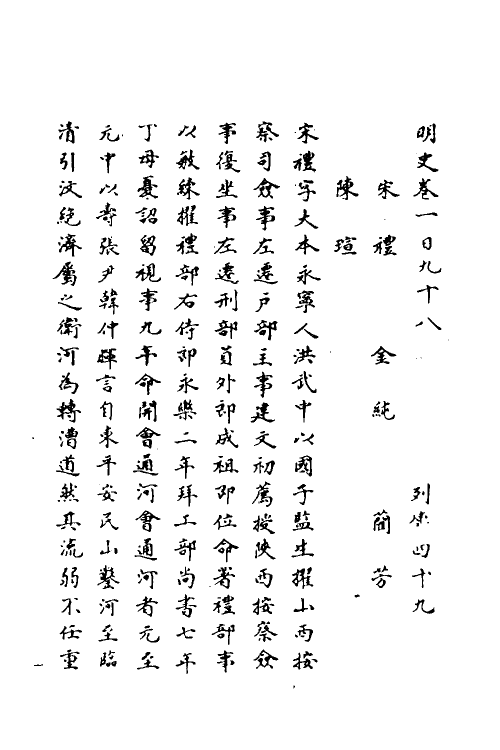 明史卷一百九十八　列傳四十九
宋禮　金純　藺芳
陳瑄
宋禮字大本永寧人洪武中以國子監生擢山西按
察司僉事左遷戶部主事建文初薦授陝西按察僉
事復坐事左遷刑部員外郎成祖即位命署禮部事
以敏練擢禮部右侍郎永樂二年拜工部尚書七年
丁母憂詔留視事九年命開會通河會通河者元至
元中以壽張尹韓仲暉言自東平安民山鑿河至臨
清引汶絕濟屬之衛河為轉漕道然其流弱不任重
一